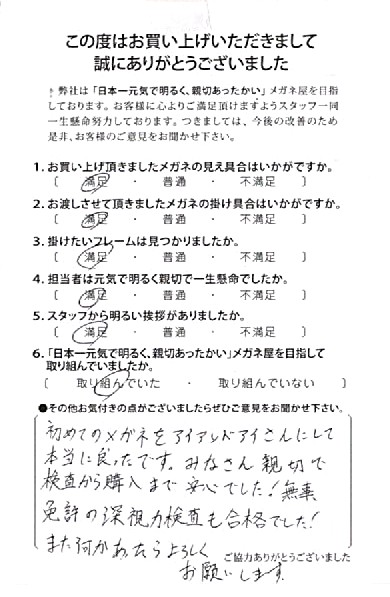 この度はお買い上げいただきまして
誠にありがとうございました
弊社は「日本一元気で明るく、親切あったかい」メガネ屋を目指
しております。お客様に心よりご満足頂けますようスタッフ一同
一生懸命努力しております。つきましては、今後の改善のため
是非、お客様のご意見をお聞かせ下さい。
1. お買い上げ頂きましたメガネの見え具合はいかがですか。
〔 満足 ・ 普通 ・ 不満足 〕
2. お渡しさせて頂きましたメガネの掛け具合はいかがですか。
〔 満足 ・ 普通 ・ 不満足 〕
3. 掛けたいフレームは見つかりましたか。
〔 満足 ・ 普通 ・ 不満足 〕
4. 担当者は元気で明るく親切で一生懸命でしたか。
〔 満足 ・ 普通 ・ 不満足 〕
5. スタッフから明るい挨拶がありましたか。
〔 満足 ・ 普通 ・ 不満足 〕
6. 「日本一元気で明るく、親切あったかい」メガネ屋を目指して
取り組んでいましたか。
〔 取り組んでいた ・ 取り組んでいない 〕
●その他お気付きの点がございましたらぜひご意見をお聞かせ下さい。
初めてのメガネをアイアンドアイさんにして
本当に良ったです。みなさん親切で
検査から購入まで安心でした!無事
免許の深視力検査も合格でした!
また何かあったらよろしく
お願いします。
ご協力ありがとうございました